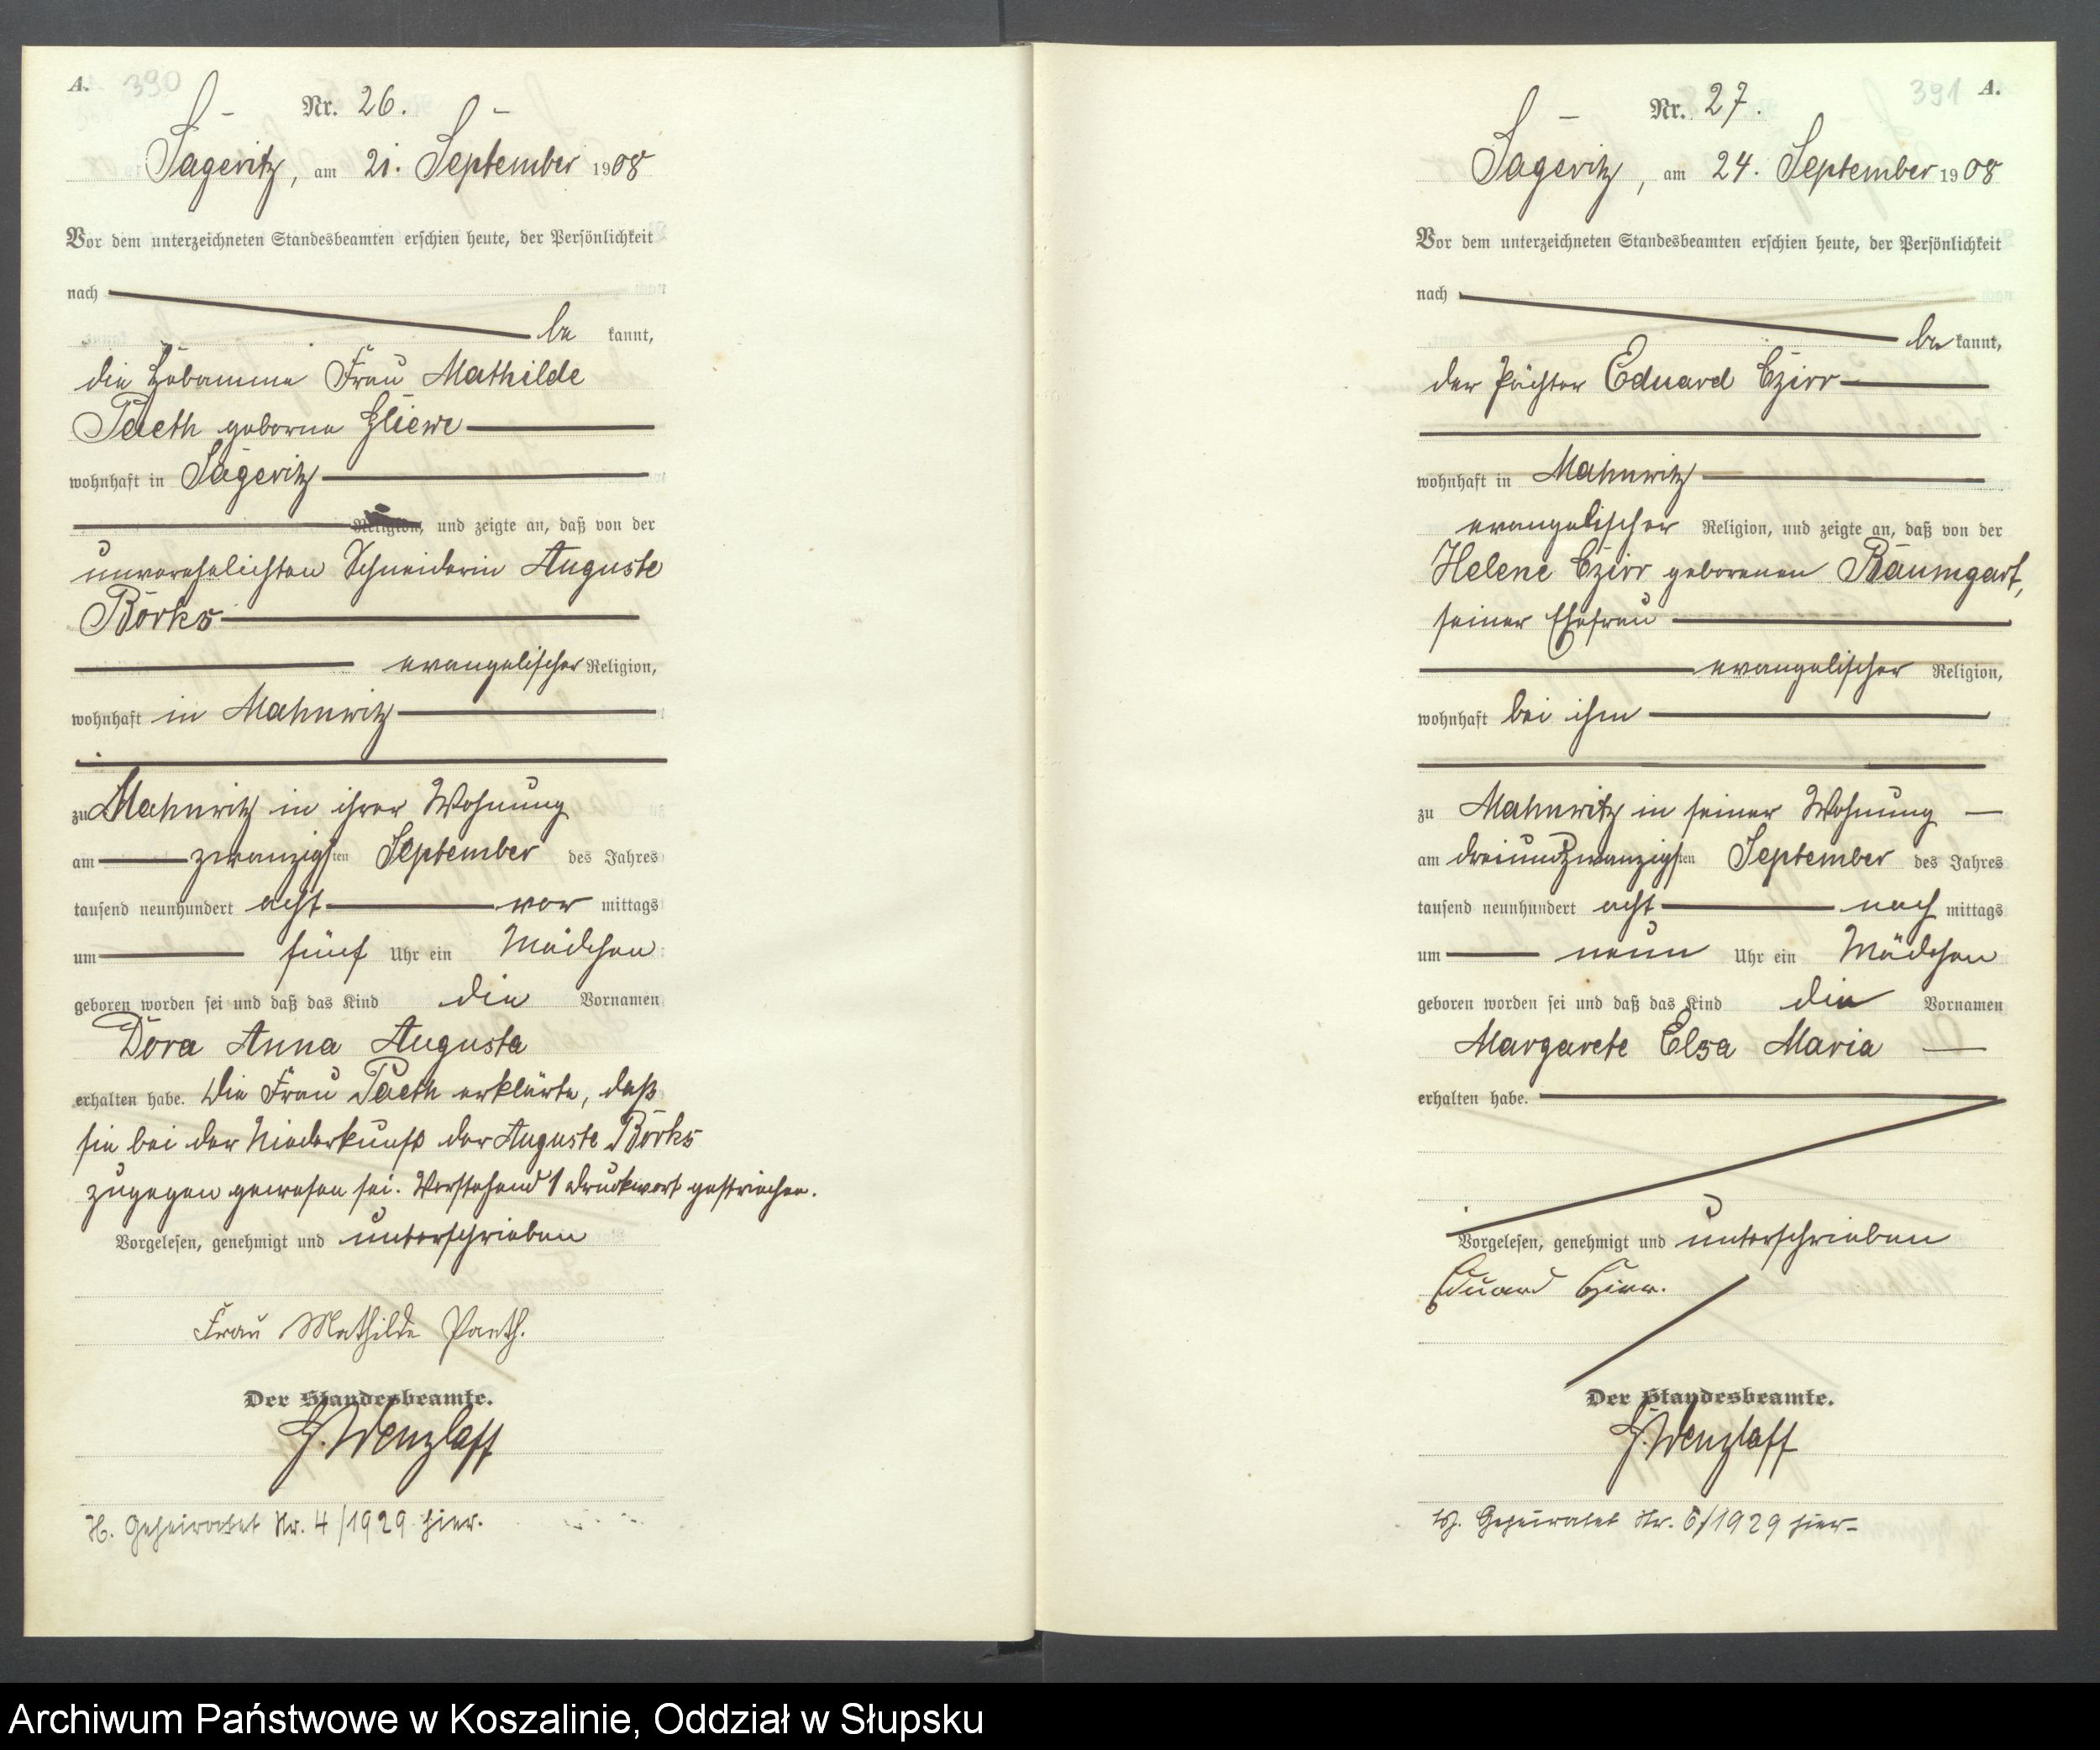 A. 390
Nr. 26.
Sageritz, am 21. September 1908
Vor dem unterzeichneten Standesbeamten erschien heute, der Persönlichkeit
nach
be kannt,
die Hebamme Frau Mathilde
Paeth geborne Gliewe
wohnhaft in Sageritz
Religion, und zeigte an, daß von der
unverehelichten Schneiderin Auguste
Börks
evangelischer Religion,
wohnhaft in Mahnwitz
zu Mahnwitz in ihrer Wohnung
am zwanzigsten September des Jahres
tausend neunhundert acht vor mittags
um fünf Uhr ein Mädchen
geboren worden sei und daß das Kind die Vornamen
Dora Anna Augusta
erhalten habe. Die Frau Paeth erklärte, daß
sie bei der Niederkunft der Auguste Börks
zugegen gewesen sei. Vorstehend 1 Druckwort gestrichen.
Vorgelesen, genehmigt und unterschrieben
Frau Mathilde Paeth.
Der Standesbeamte.
G. Wenzlaff
H. Geheiratet Nr. 4/1929 hier.
391 A.
Nr. 27.
Sageritz, am 24. September 1908
Vor dem unterzeichneten Standesbeamten erschien heute, der Persönlichkeit
nach
be kannt,
der Pächter Eduard Czirr
wohnhaft in Mahnwitz
evangelischer Religion, und zeigte an, daß von der
Helene Czirr geborenen Baumgart,
seiner Ehefrau
evangelischer Religion,
wohnhaft bei ihm
zu Mahnwitz in seiner Wohnung
am dreiundzwanzigsten September des Jahres
tausend neunhundert acht nach mittags
um neun Uhr ein Mädchen
geboren worden sei und daß das Kind die Vornamen
Margarete Elsa Maria
erhalten habe.
Vorgelesen, genehmigt und unterschrieben
Eduard Czirr.
Der Standesbeamte.
G. Wenzlaff
Geheiratet Nr. 6/1929 hier
Archiwum Państwowe w Koszalinie, Oddział w Słupsku